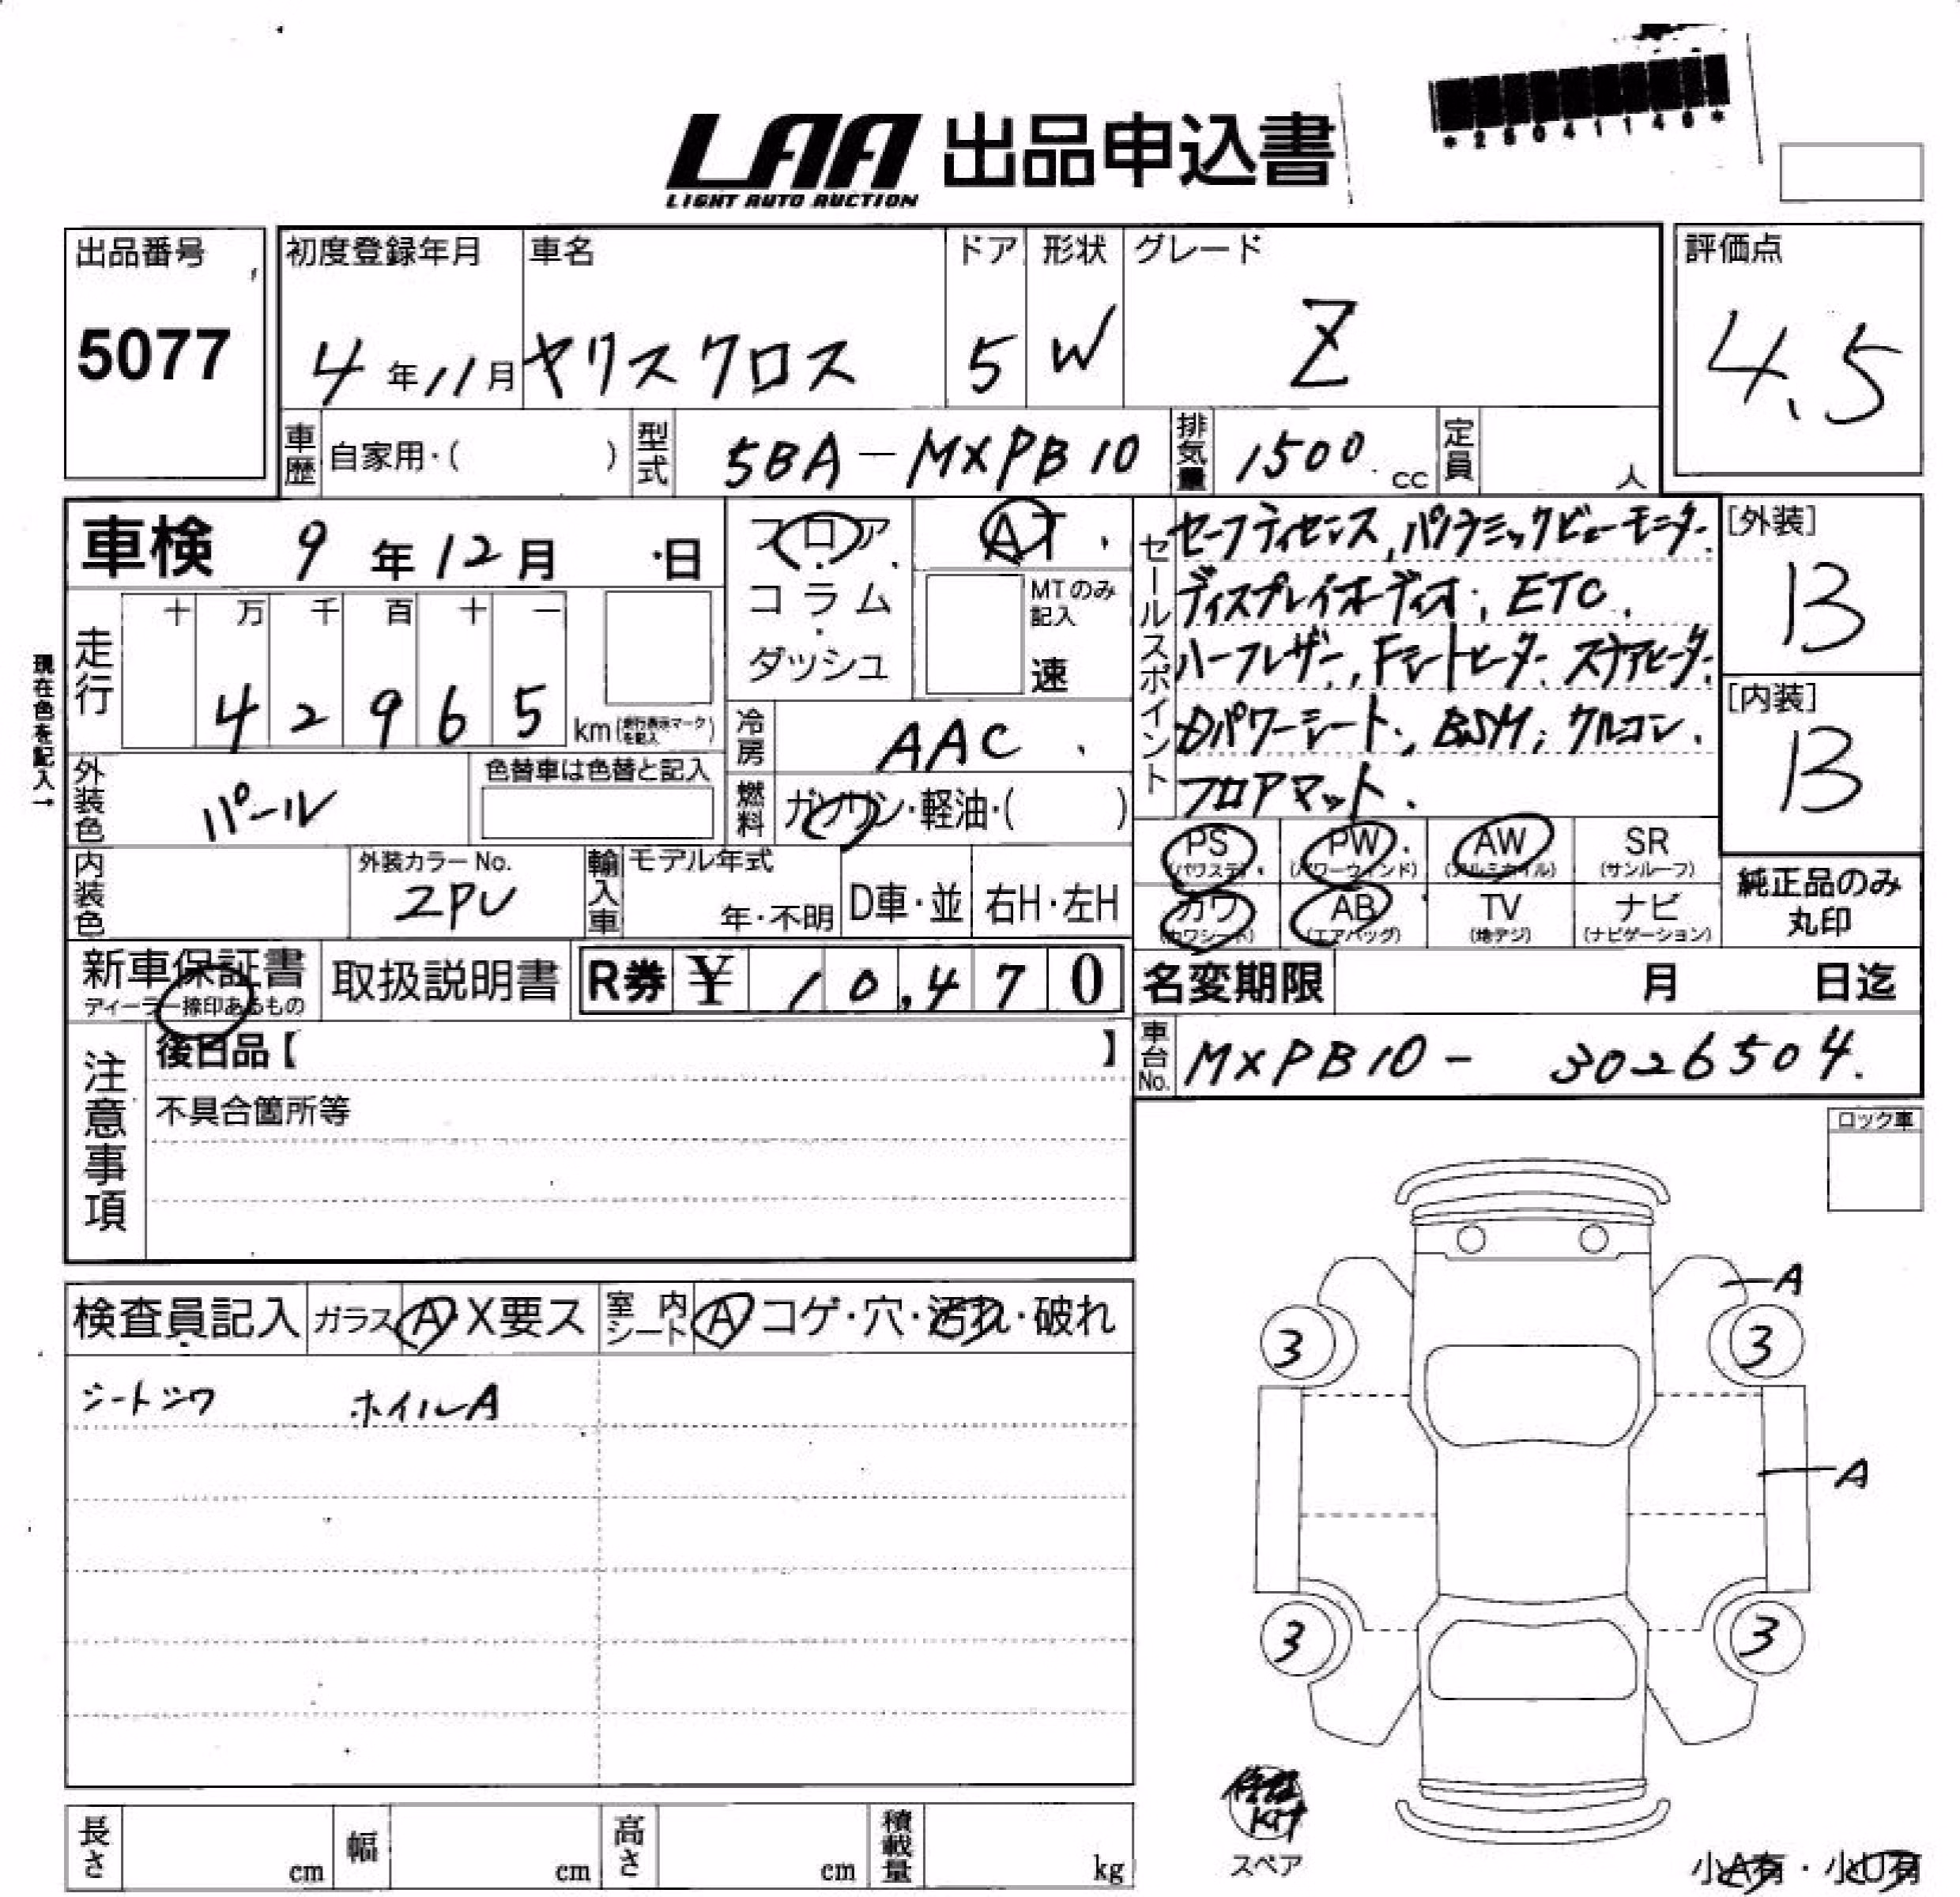 LAA 出品申込書
LIGHT AUTO AUCTION
出品番号
5077
初度登録年月
4年11月
車名
ヤリスクロス
ドア
5
形状
W
グレード
Z
評価点
4.5
車歴 自家用・( )
型式 5BA-MXPB10
排気量 1500 cc
定員 人
車検 9年12月 日
フロア・コラム・ダッシュ
AT
MTのみ記入
速
現在色を記入→
走行
十 万 千 百 十 一
4 2 9 6 5 km(走行表示マークを記入)
冷房 AAC
外装色 パール
色替車は色替と記入
燃料 ガソリン・軽油・( )
セールスポイント
セーフティセンス,パノラミックビューモニター
ディスプレイオーディオ, ETC,
ハーフレザー, Fシートヒーター, ステアヒーター
Dパワーシート, BSM, クルコン,
フロアマット,
[外装]
13
[内装]
13
内装色
外装カラーNo.
2PU
輸入車 モデル年式
年・不明 D車・並 右H・左H
PS (パワステ)
PW (パワーウィンド)
AW (アルミホイル)
SR (サンルーフ)
カワ (カワシート)
AB (エアバッグ)
TV (地デジ)
ナビ (ナビゲーション)
純正品のみ丸印
新車保証書
ディーラー捺印あるもの
取扱説明書
R券 ¥ 10,470
名変期限 月 日迄
注意事項
後日品【 】
不具合箇所等
車台No. MXPB10-3026504.
ロック車
検査員記入 ガラス A・X要ス 室内シート A コゲ・穴・汚れ・破れ
シートシワ ホイルA
A
3 3
A
3 3
修理
Kit
スペア
小A有・小U有
長さ cm 幅 cm 高さ cm 積載量 kg